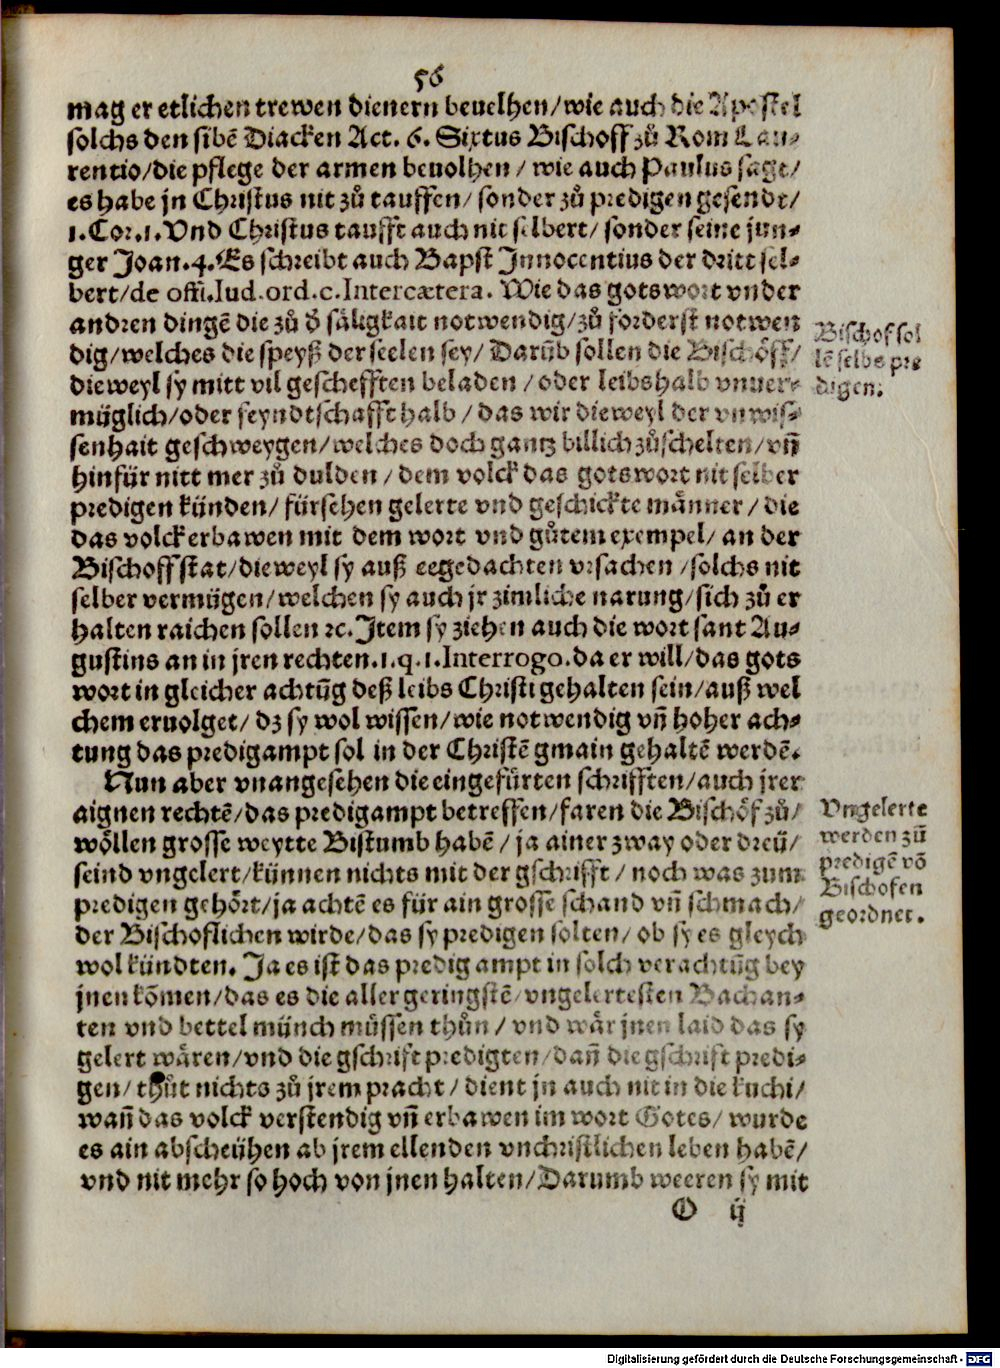 56
mag er etlichen trewen dienern beuelhen/wie auch die Apostel
solchs den sibē Diacken Act. 6. Sixtus Bischoff zů Rom Lau-
rentio/die pflege der armen beuolhen / wie auch Paulus sagt/
es habe jn Christus nit zů tauffen/ sonder zů predigen gesendt/
1.Cor.1.Vnd Christus taufft auch nit selbert/ sonder seine jun-
ger Joan.4.Es schreibt auch Bapst Innocentius der dritt sel-
bert/de offi.Iud.ord.c.Intercætera. Wie das gotswort vnder
andren dingē die zů d̄ säligkait notwendig/zů forderst notwen
dig/welches die speyß der seelen sey/ Darūb sollen die Bischöff/
dieweyl sy mitt vil geschefften beladen / oder leibshalb vnuer-
müglich/oder feyndtschafft halb / das wir dieweyl der vnwis-
senhait geschweygen/welches doch gantz billich zůschelten/vn̄
hinfür nitt mer zů dulden / dem volck das gotswort nit selber
predigen künden/ fürsehen gelerte vnd geschickte männer / die
das volck erbawen mit dem wort vnd gůtem exempel/ an der
Bischoff stat/dieweyl sy auß eegedachten vrsachen /solchs nit
selber vermügen/welchen sy auch jr zimliche narung/sich zů er
halten raichen sollen ꝛc.Item sy ziehen auch die wort sant Au-
gustins an in jren rechten.1.q.1.Interrogo.da er will/das gots
wort in gleicher achtūg deß leibs Christi gehalten sein/auß wel
chem eruolget/ dz sy wol wissen/wie notwendig vn̄ hoher ach-
tung das predigampt sol in der Christē gmain gehaltē werdē.
Nun aber vnangesehen die eingefürten schrifften/auch jrer
aignen rechtē/das predigampt betreffen/faren die Bischöf zů/
wöllen grosse weytte Bistumb habē / ja ainer zway oder dreü/
seind vngelert/künnen nichts mit der gschrifft / noch was zum
predigen gehört/ja achtē es für ain grosse schand vn̄ schmach/
der Bischoflichen wirde/das sy predigen solten/ ob sy es gleych
wol kündten. Ja es ist das predig ampt in solch verachtūg bey
jnen kōmen/das es die aller geringstē/vngelertesten Bachan-
ten vnd bettel münch müssen thůn / vnd wär jnen laid das sy
gelert wären/vnd die gschrift predigten/dan̄ die gschrift predi-
gen/ thůt nichts zů jrem pracht / dient jn auch nit in die kuchi/
wan̄ das volck verstendig vn̄ erbawen im wort Gotes/ wurde
es ain abscheühen ab jrem ellenden vnchristlichen leben habē/
vnd nit mehr so hoch von jnen halten/Darumb weeren sy mit
O ij
Bischof sol
lē selbs pre
digen.
Vngelerte
werden zů
predigē vō
Bischofen
geordnet.
Digitalisierung gefördert durch die Deutsche Forschungsgemeinschaft - DFG